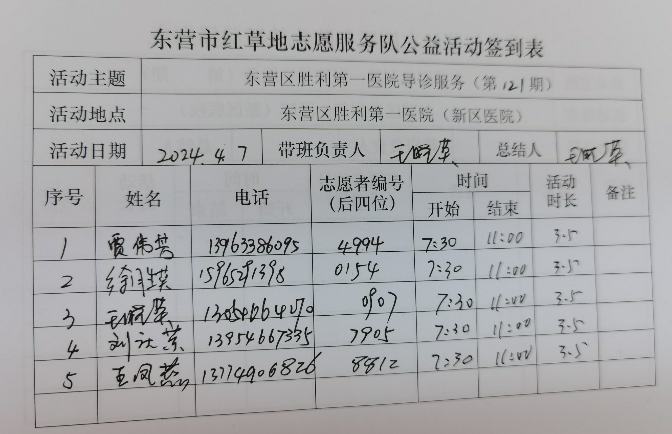 东营市红草地志愿服务队公益活动签到表
活动主题 东营区胜利第一医院导诊服务（第121期）
活动地点 东营区胜利第一医院（新区医院）
活动日期 2024.4.7 带班负责人 王晓英 总结人
序号 姓名 电话 志愿者编号（后四位） 时间 开始 结束 活动时长 备注
1 贾伟芳 13963386095 4994 7:30 11:00 3.5
2 0154 7:30 11:00 3.5
3 王晓英 0907 7:30 11:00 3.5
4 刘 英 13954667335 7905 7:30 11:00 3.5
5 王凤燕 13774906826 8812 7:30 11:00 3.5